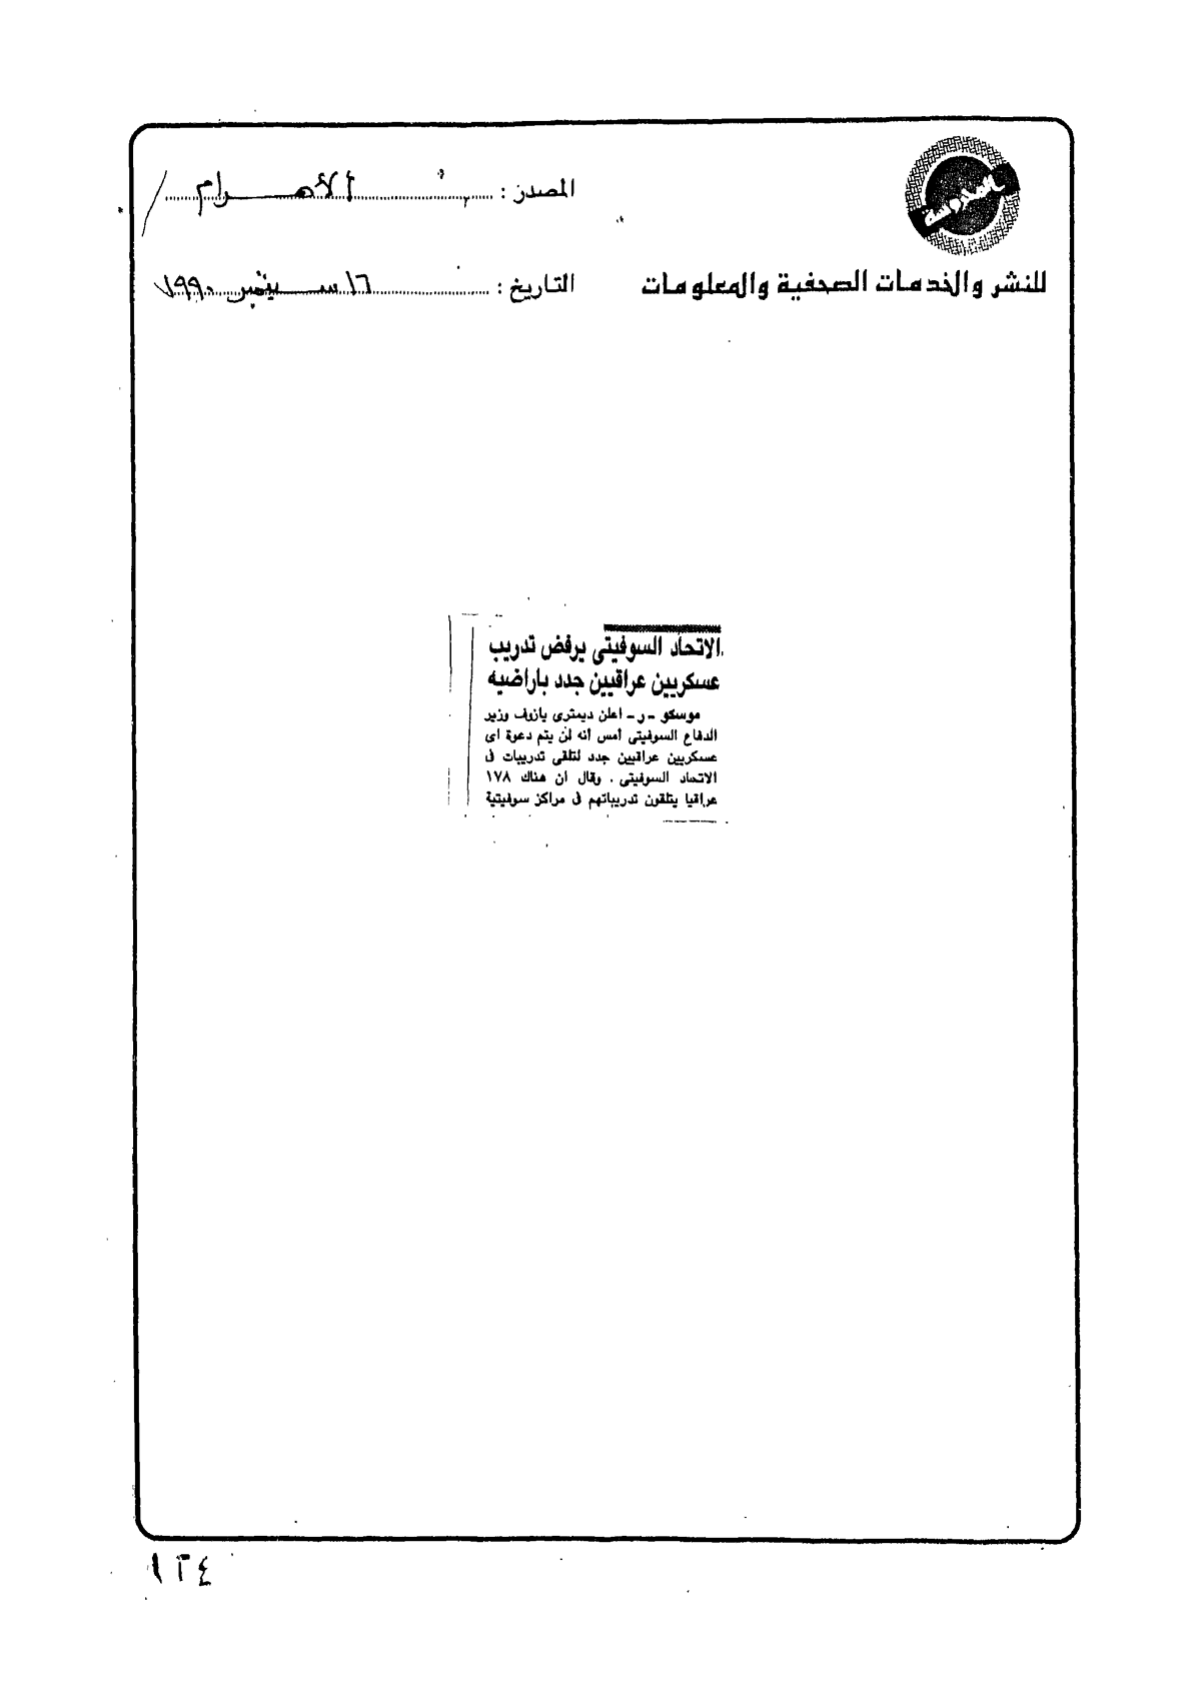 المحروسة
للنشر والخدمات الصحفية والمعلومات
المصدر : الأهرام
التاريخ : ١٦ سبتمبر ١٩٩٠
الاتحاد السوفيتى يرفض تدريب
عسكريين عراقيين جدد باراضيه
موسكو - ر - اعلن ديمترى يازوف وزير
الدفاع السوفيتى أمس أنه لن يتم دعوة اى
عسكريين عراقيين جدد لتلقى تدريبات فى
الاتحاد السوفيتى . وقال ان هناك ١٧٨
عراقيا يتلقون تدريباتهم فى مراكز سوفيتية